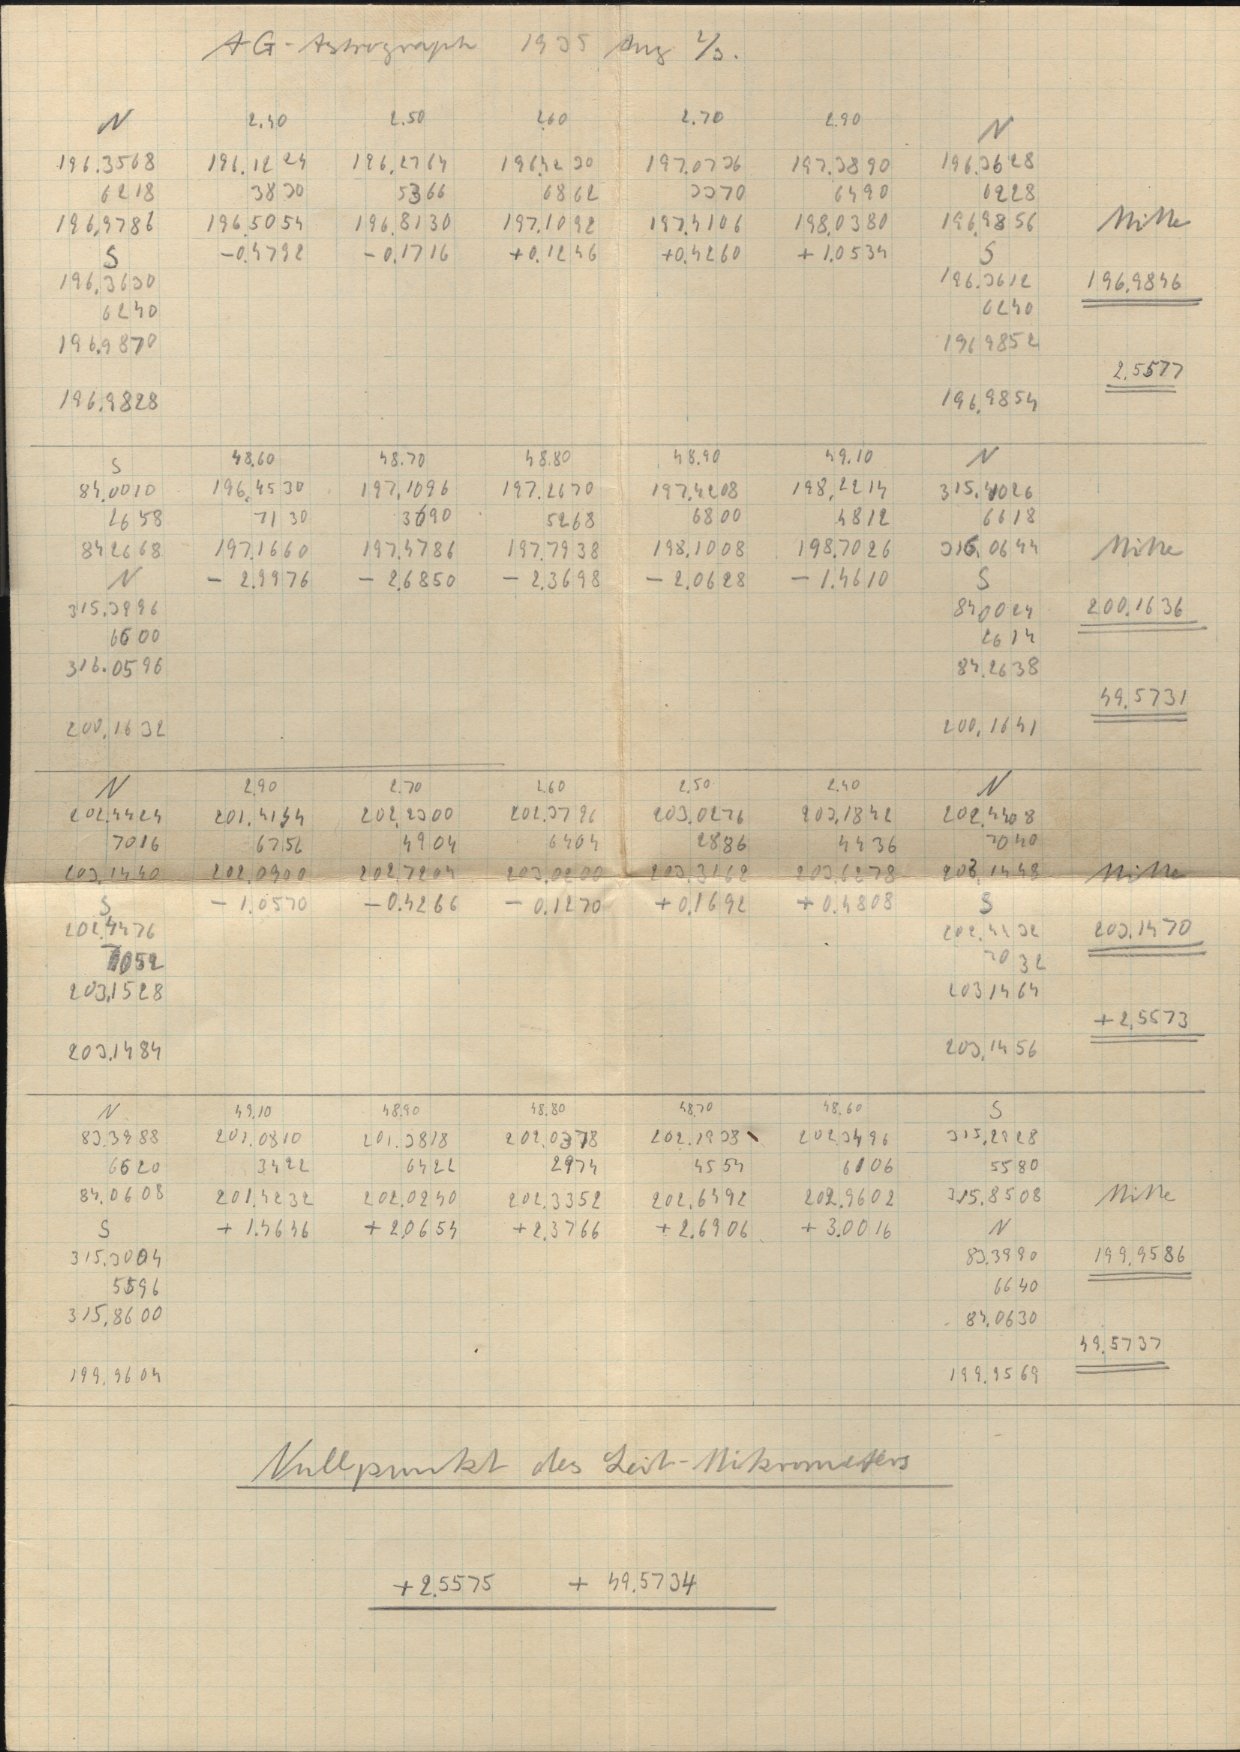 AG-Astrograph 1935 Aug 2/3.
N 2.40 2.50 2.60 2.70 2.90 N
196.3568 196.1224 196.2764 196.4230 197.0736 197.3890 196.3628
6218 3830 5366 6862 3370 6490 6228
196.9786 196.5054 196.8130 197.1092 197.4106 198.0380 196.9856 Mitte
S -0.4792 -0.1716 +0.1246 +0.4260 +1.0534 S
196.3630 196.3612 196.9846
6240 6240
196.9870 196.9852
2.5577
196.9828 196.9854
S 48.60 48.70 48.80 48.90 49.10 N
84.0010 196.4530 197.1096 197.2670 197.4208 198.2214 315.4026
2658 7130 3690 5268 6800 4812 6618
84.2668 197.1660 197.4786 197.7938 198.1008 198.7026 316.0644 Mitte
N - 2.9976 - 2.6850 - 2.3698 - 2.0628 - 1.4610 S
315.3996 84.0024 200.1636
6600 2614
316.0596 84.2638
49.5731
200.1632 200.1641
N 2.90 2.70 2.60 2.50 2.40 N
202.4424 201.4144 202.2300 202.3796 203.0276 203.1842 202.4408
7016 6756 4904 6404 2886 4436 7040
203.1440 202.0900 202.7204 203.0200 203.3162 203.6278 203.1448 Mitte
S - 1.0570 -0.4266 - 0.1270 +0.1692 +0.4808 S
202.4476 202.4432 203.1470
7052 7032
203.1528 203.1464
+2.5573
203.1484 203.1456
N 49.10 48.90 48.80 48.70 48.60 S
83.3988 201.0810 201.3818 202.0378 202.1938 202.3496 315.2928
6620 3422 6422 2974 4554 6106 5580
84.0608 201.4232 202.0240 202.3352 202.6492 202.9602 315.8508 Mitte
S + 1.4646 + 2.0654 + 2.3766 + 2.6906 + 3.0016 N
315.3004 83.3990 199.9586
5596 6640
315.8600 84.0630
49.5737
199.9604 199.9569
Nullpunkt des Leit-Mikrometers
+2.5575 + 49.5734